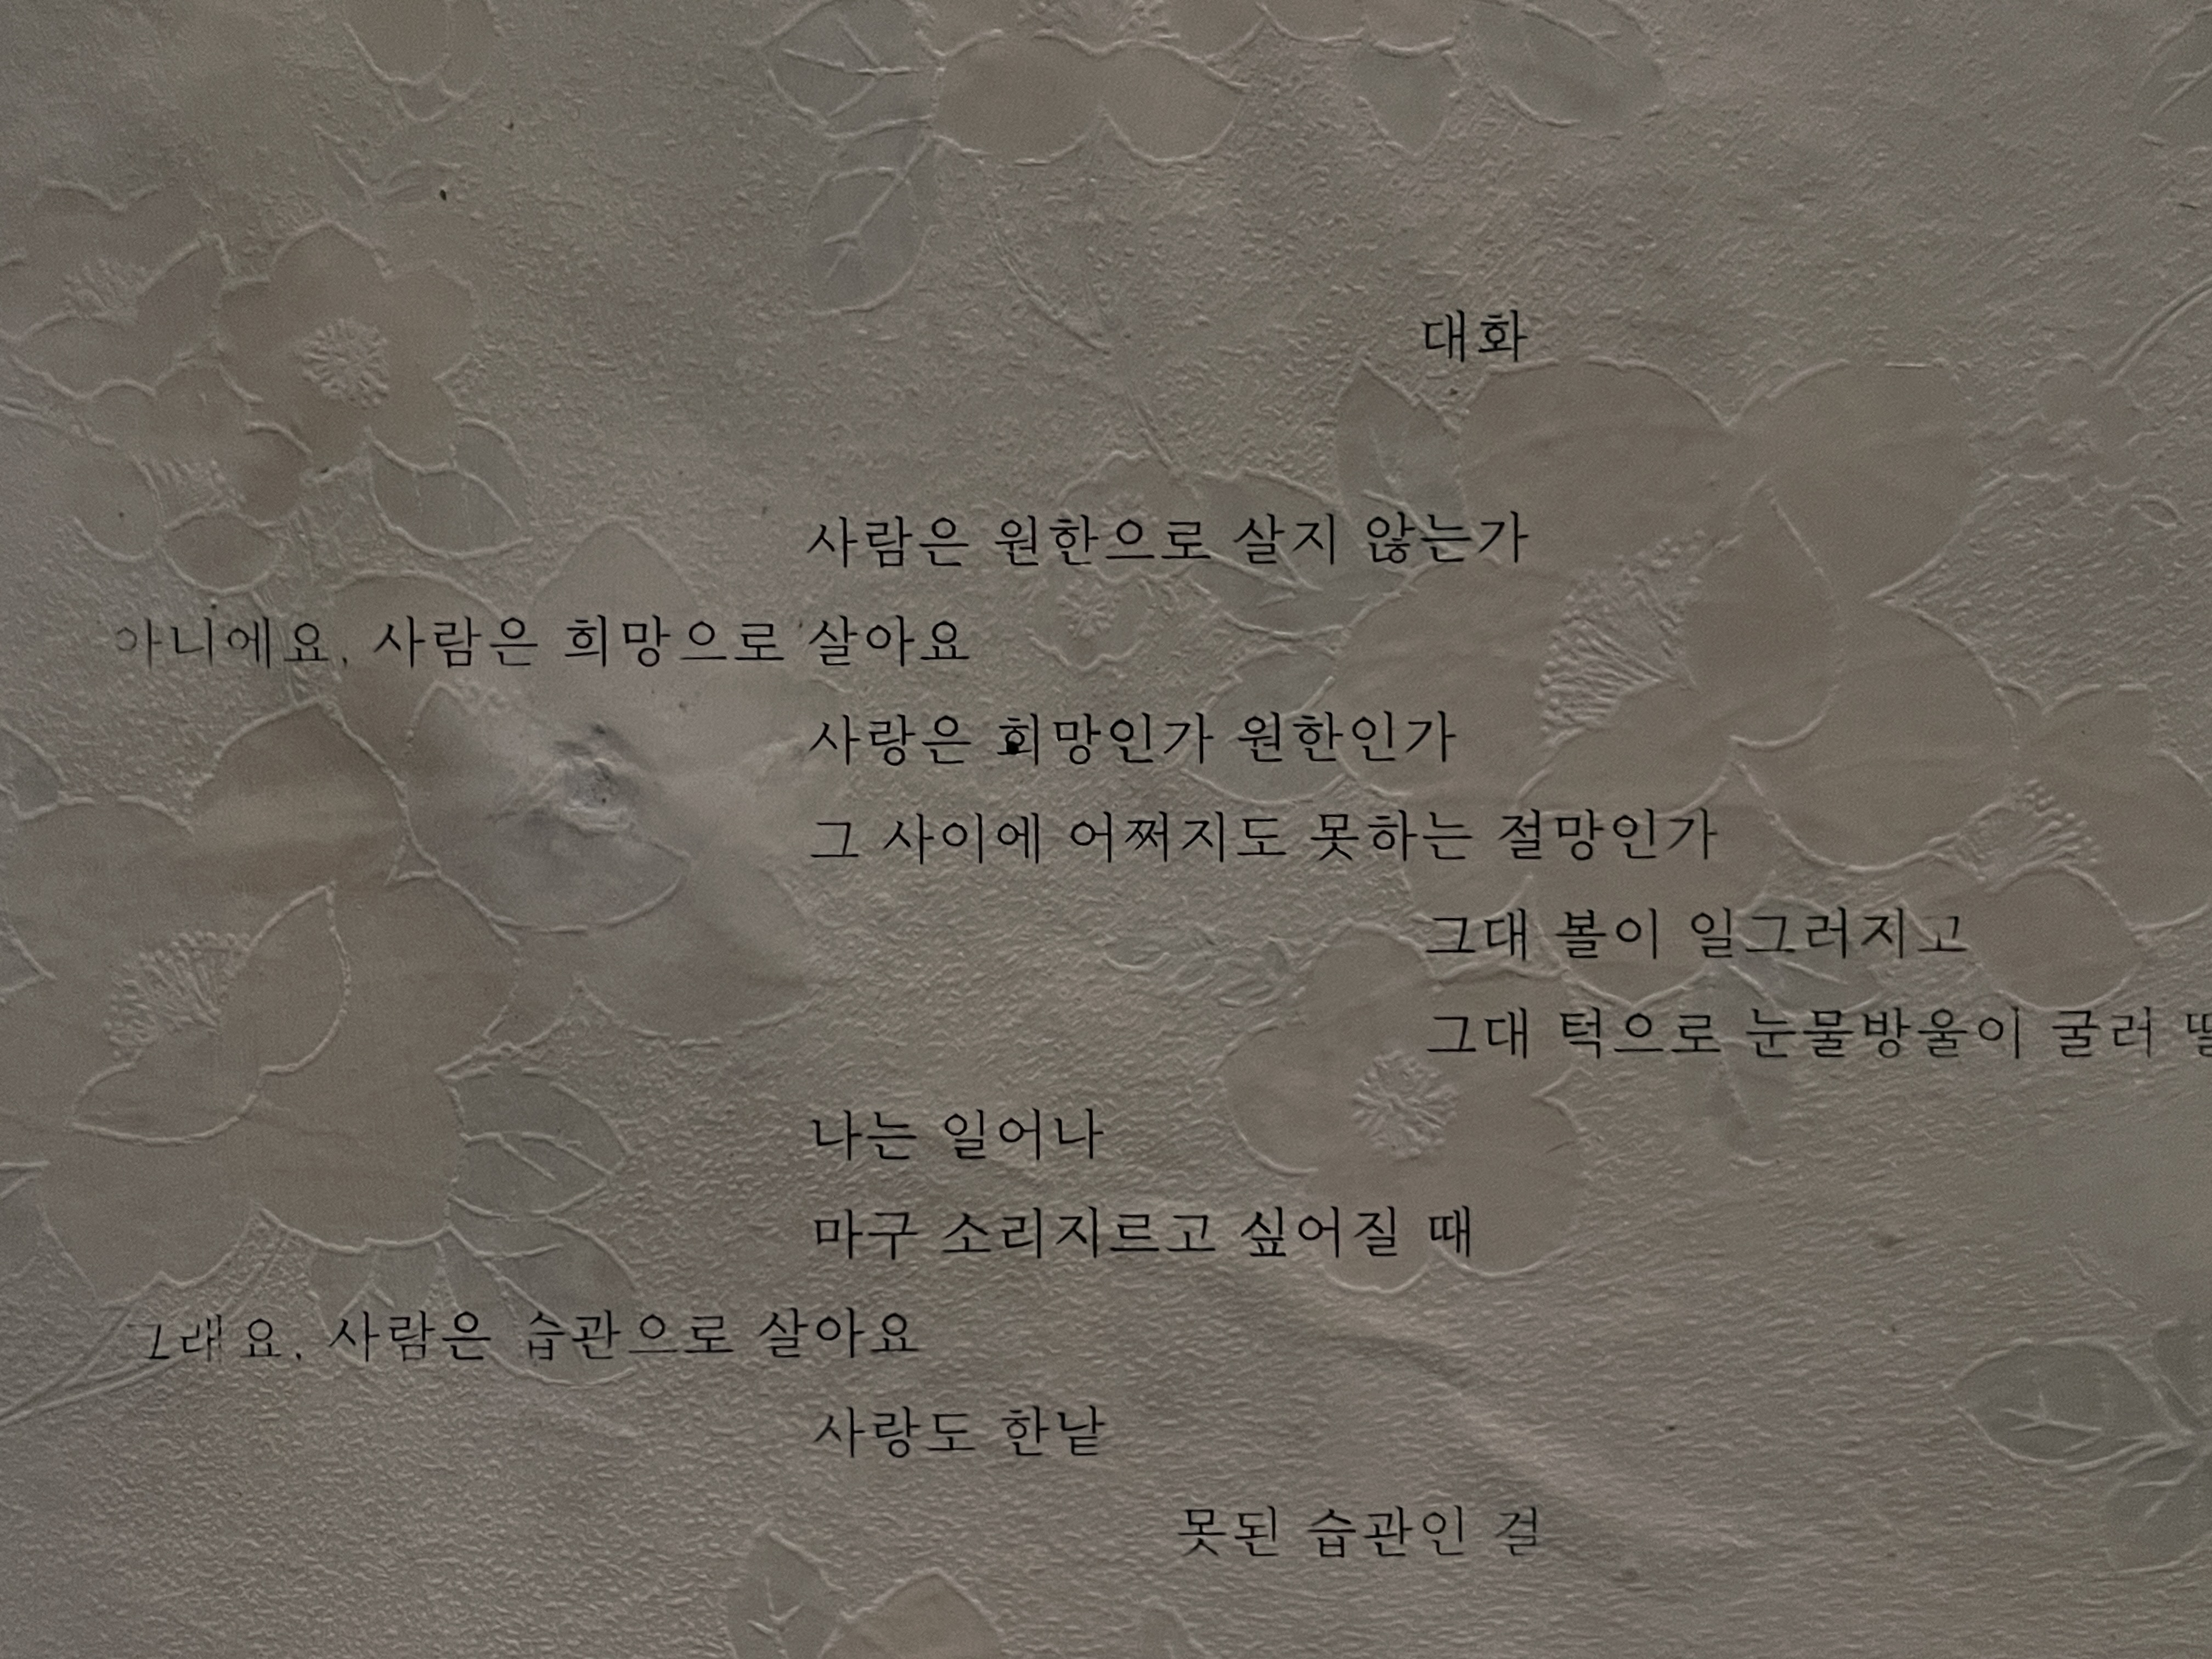 대화
사람은 원한으로 살지 않는가
아니에요, 사람은 희망으로 살아요
사랑은 희망인가 원한인가
그 사이에 어쩌지도 못하는 절망인가
그대 볼이 일그러지고
그대 턱으로 눈물방울이 굴러
나는 일어나
마구 소리지르고 싶어질 때
그래요, 사람은 습관으로 살아요
사랑도 한낱
못된 습관인 걸